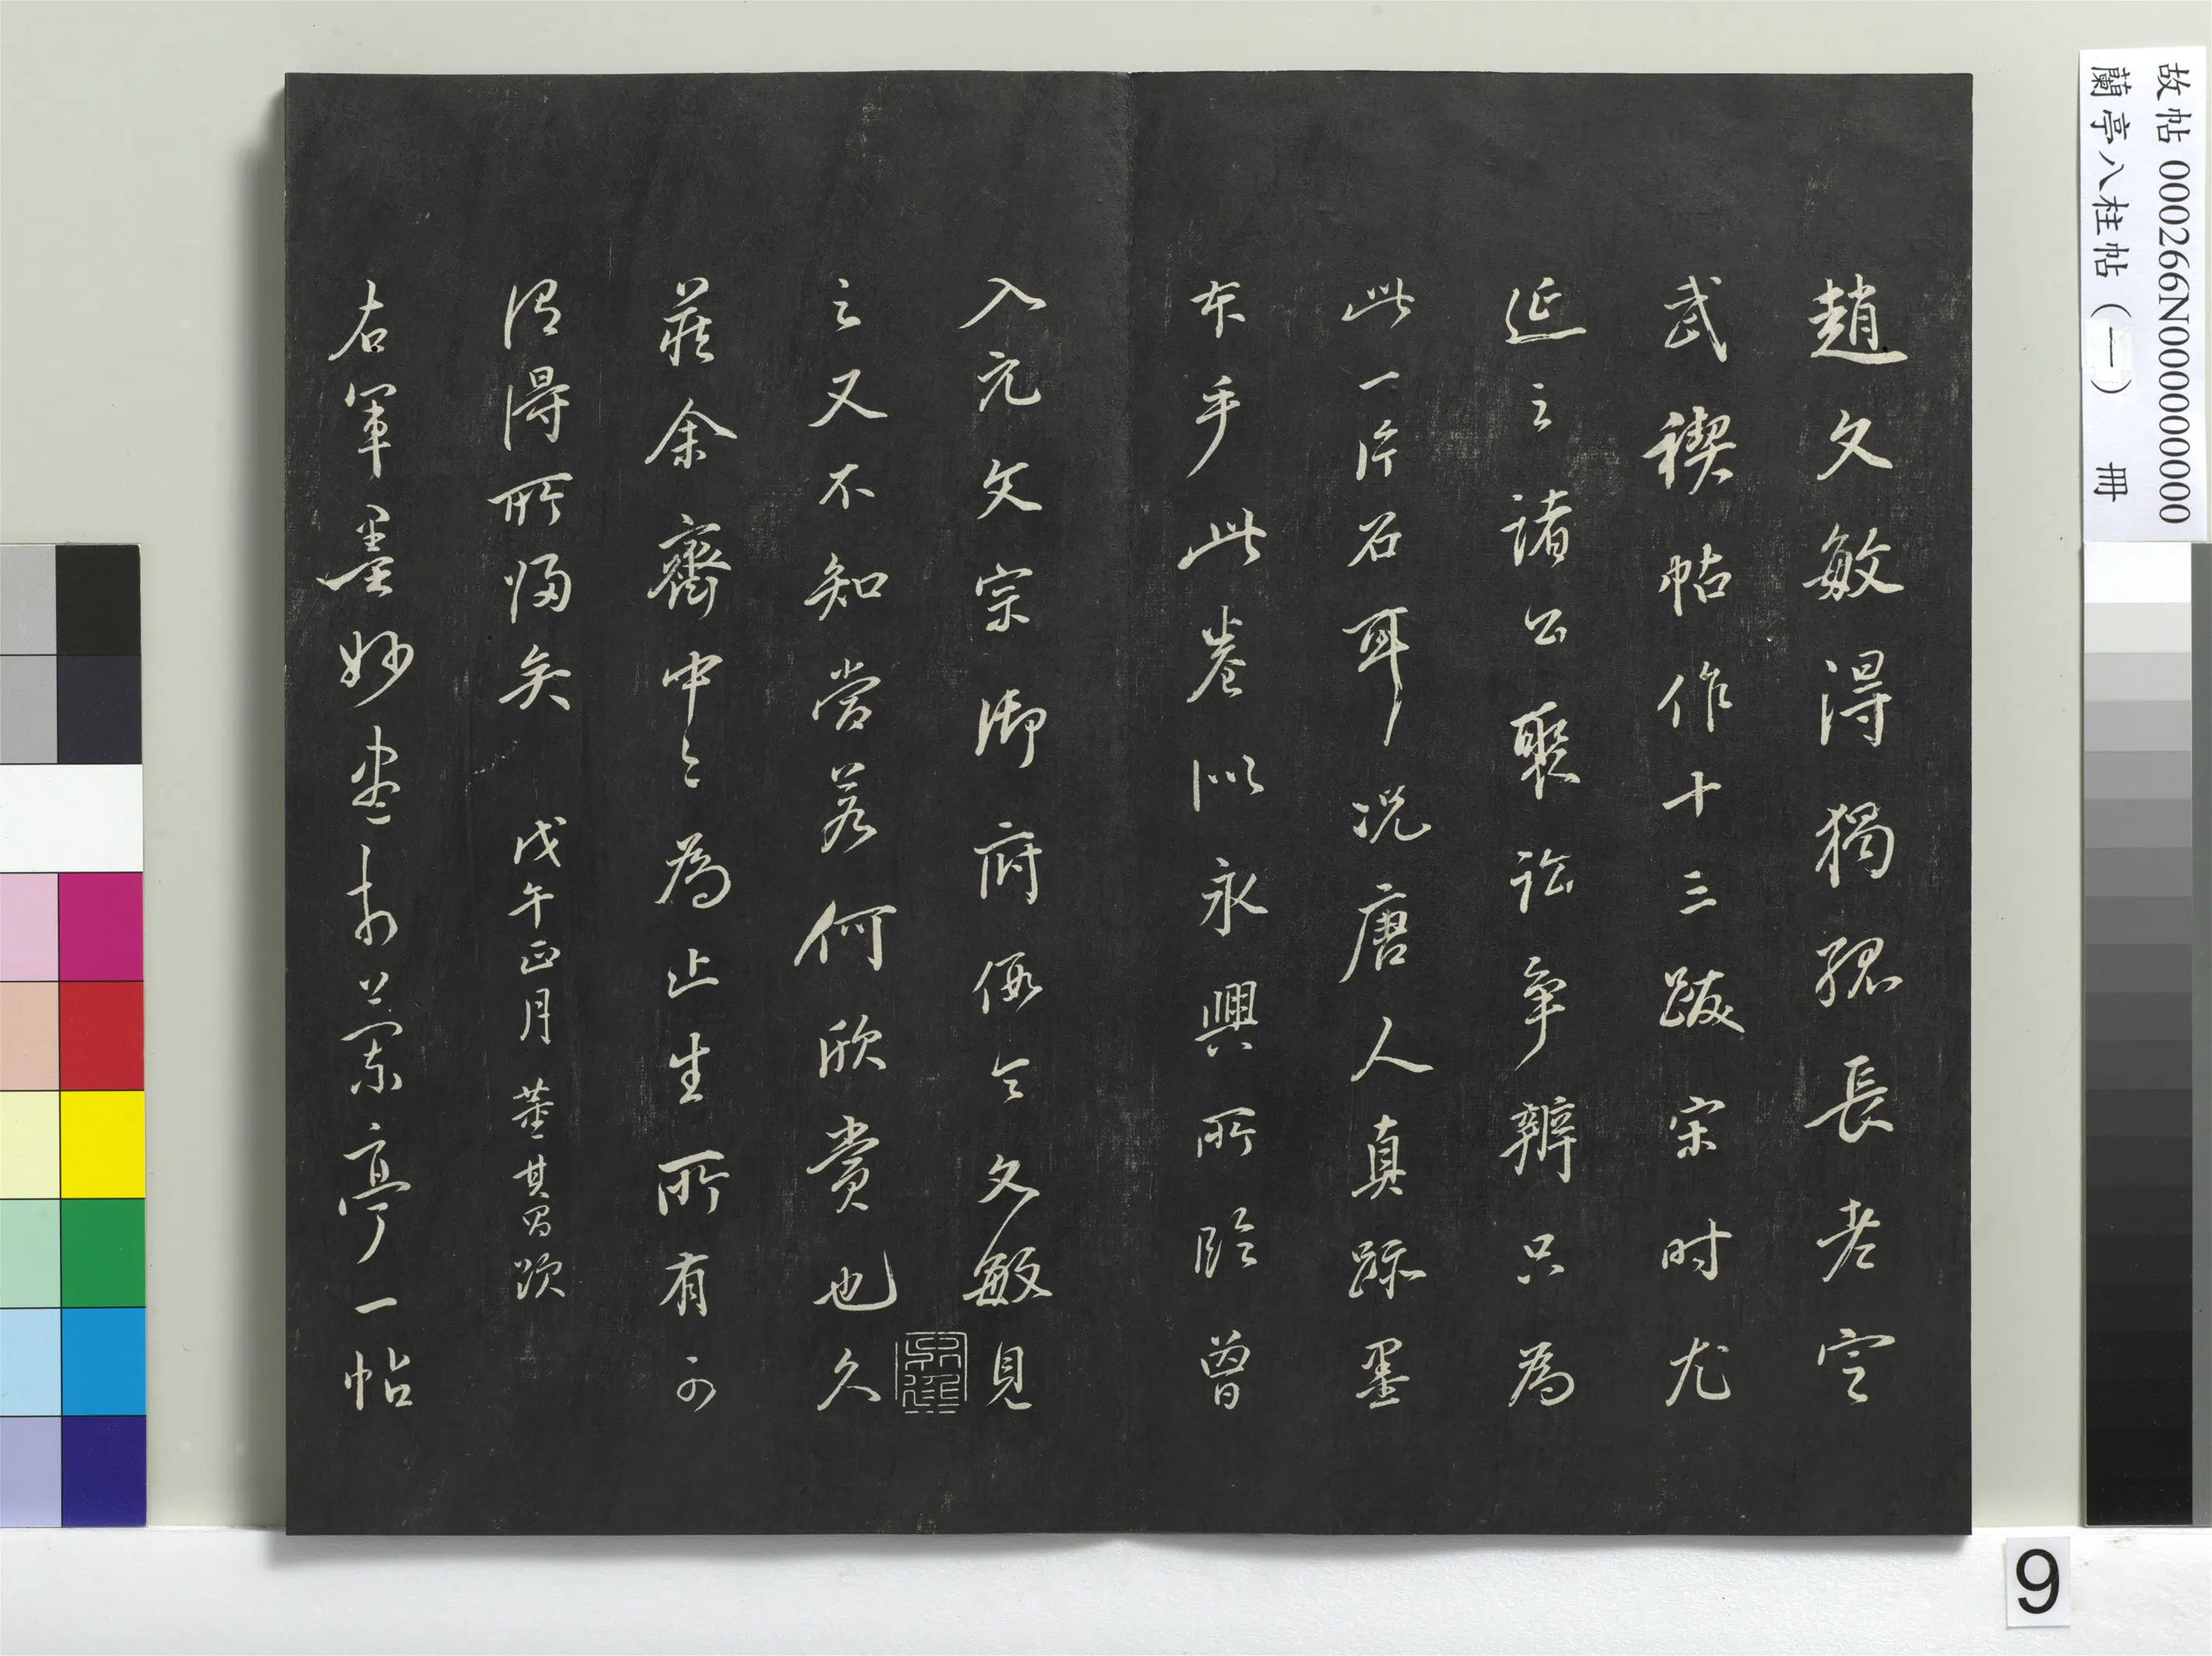 趙文敏得獨孤長老定
武禊帖作十三跋宋時尤
延之諸公聚訟爭辨只為
此一片石耳況唐人真跡墨
本乎此卷似永興所臨曾
入元文宗御府假令文敏見
之又不知當若何欣賞也久
藏余齋中今為止生所有可
謂得所歸矣 戊午正月 董其昌跋
右軍墨妙盡於蘭亭一帖
故帖 000266N000000000
蘭亭八柱帖(一) 冊
9